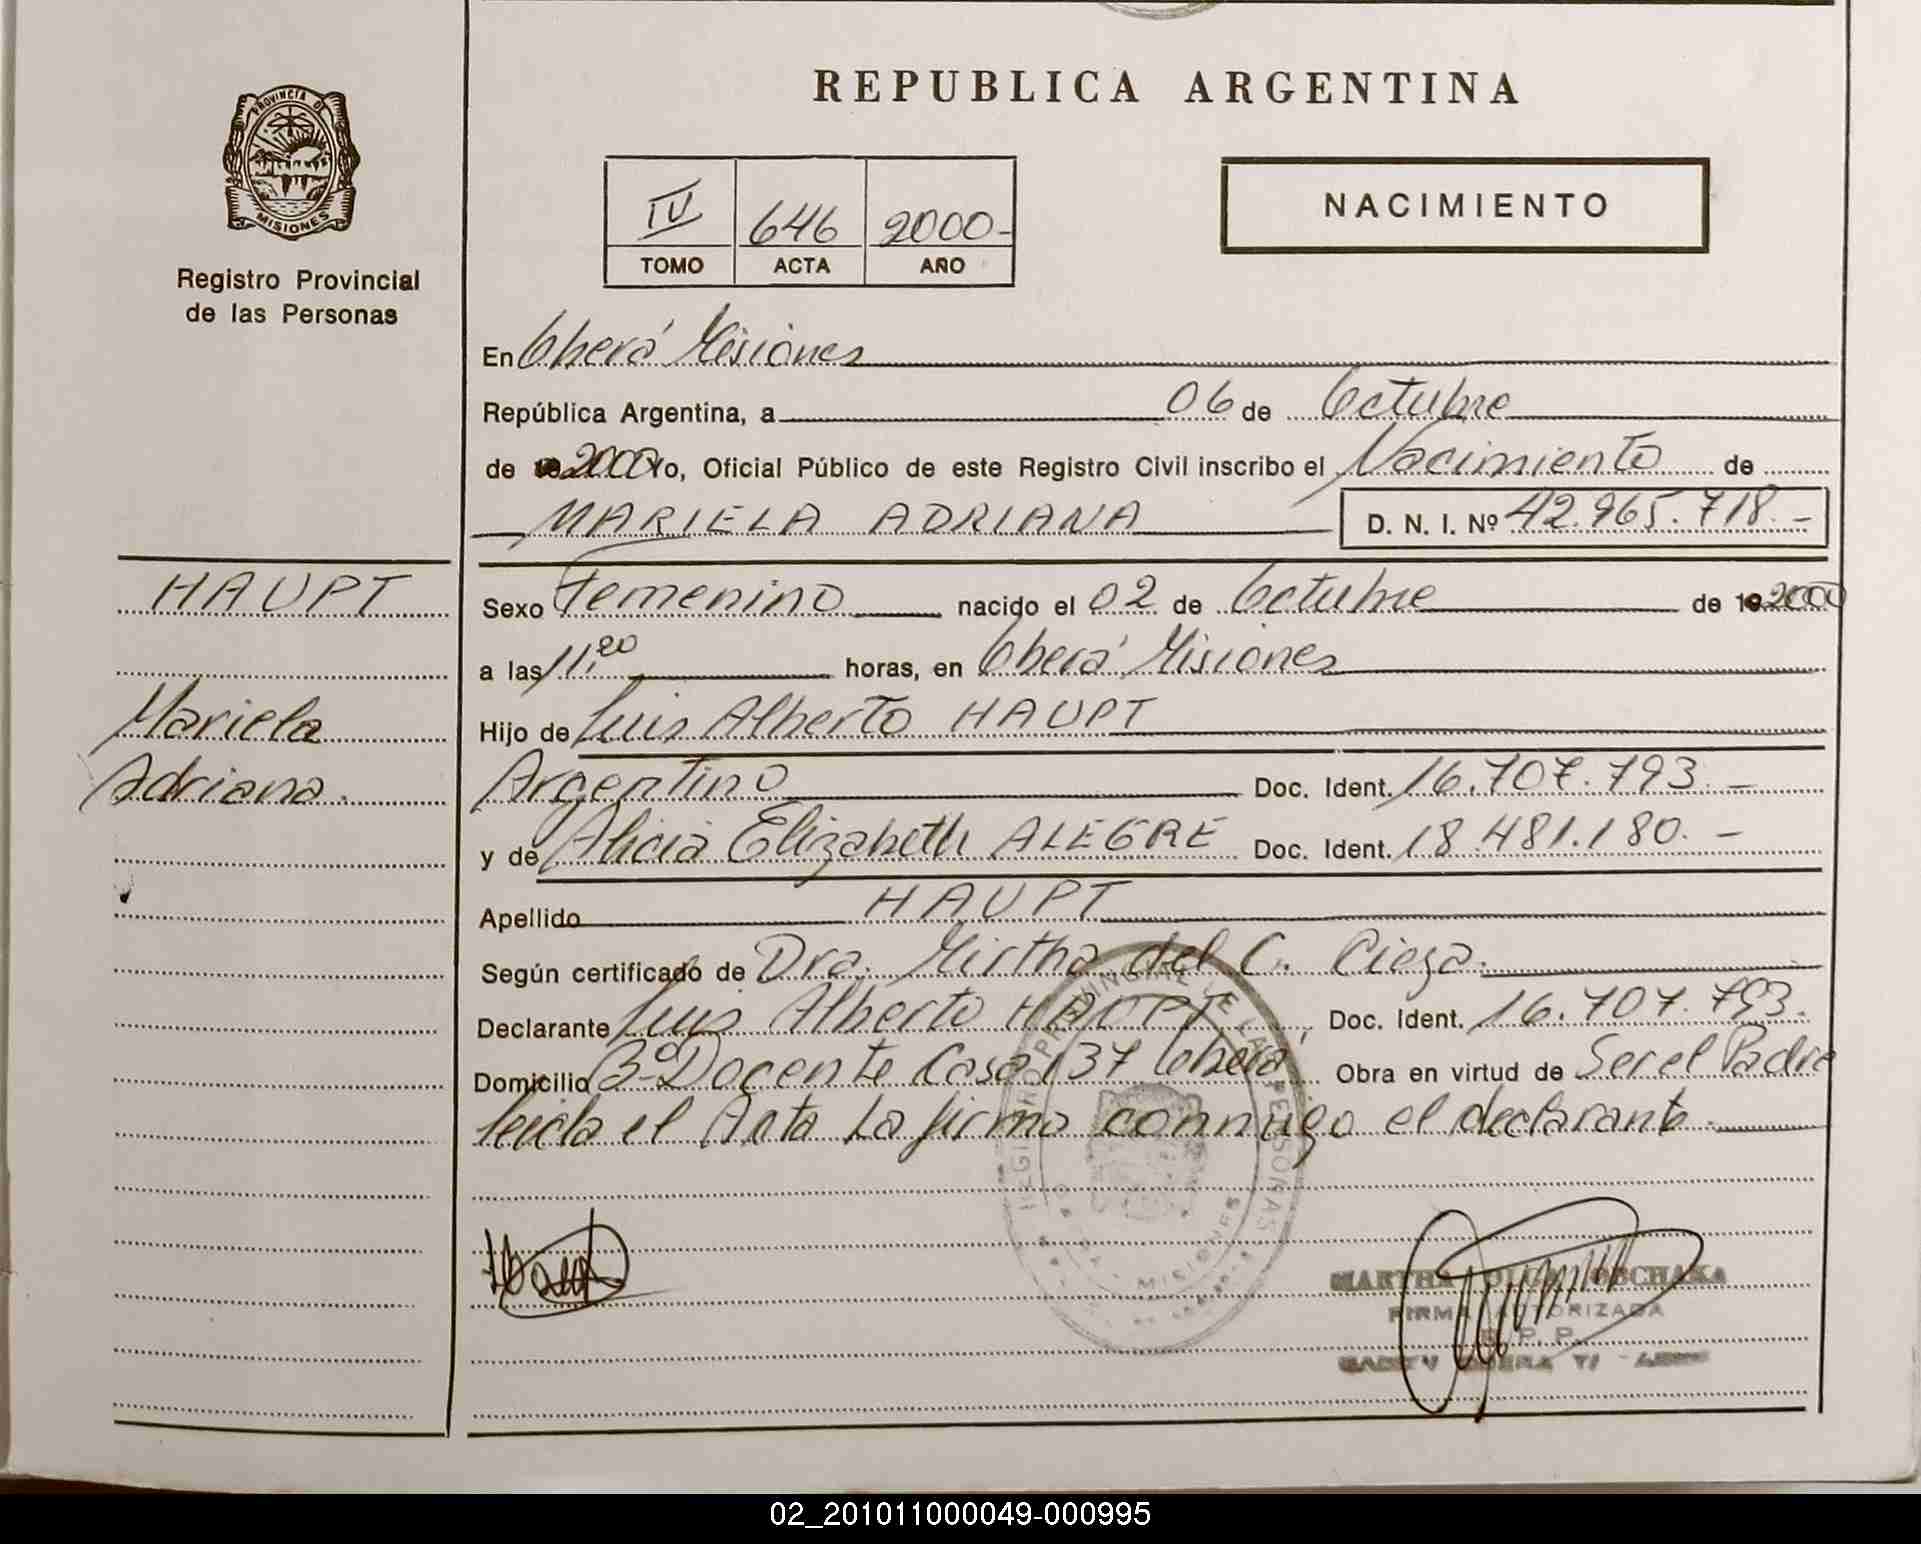 REPUBLICA ARGENTINA
PROVINCIA DE
MISIONES
Registro Provincial
de las Personas
IV 646 2000-
TOMO ACTA AÑO
NACIMIENTO
En Oberá Misiones
República Argentina, a 06 de Octubre
de 2000 Yo, Oficial Público de este Registro Civil inscribo el Nacimiento de
MARIELA ADRIANA D. N. I. Nº 42.965.718.-
HAUPT
Mariela
Adriana.
Sexo Femenino nacido el 02 de Octubre de 19 2000
a las 11,20 horas, en Oberá Misiones
Hijo de Luis Alberto HAUPT
Argentino Doc. Ident. 16.707.793.-
y de Alicia Elizabeth ALEGRE Doc. Ident. 18.481.180.-
Apellido HAUPT
Según certificado de Dra. Mirtha del C. Cieza.
Declarante Luis Alberto HAUPT Doc. Ident. 16.707.793.
Domicilio Bº Docente Casa 137 Oberá Obra en virtud de Ser el Padre
leida el Acta La firma conmigo el declarante.
REGISTRO PROVINCIAL DE LAS PERSONAS
MISIONES
MARTHA OLGA
FIRMA AUTORIZADA
R. P. P.
02_201011000049-000995